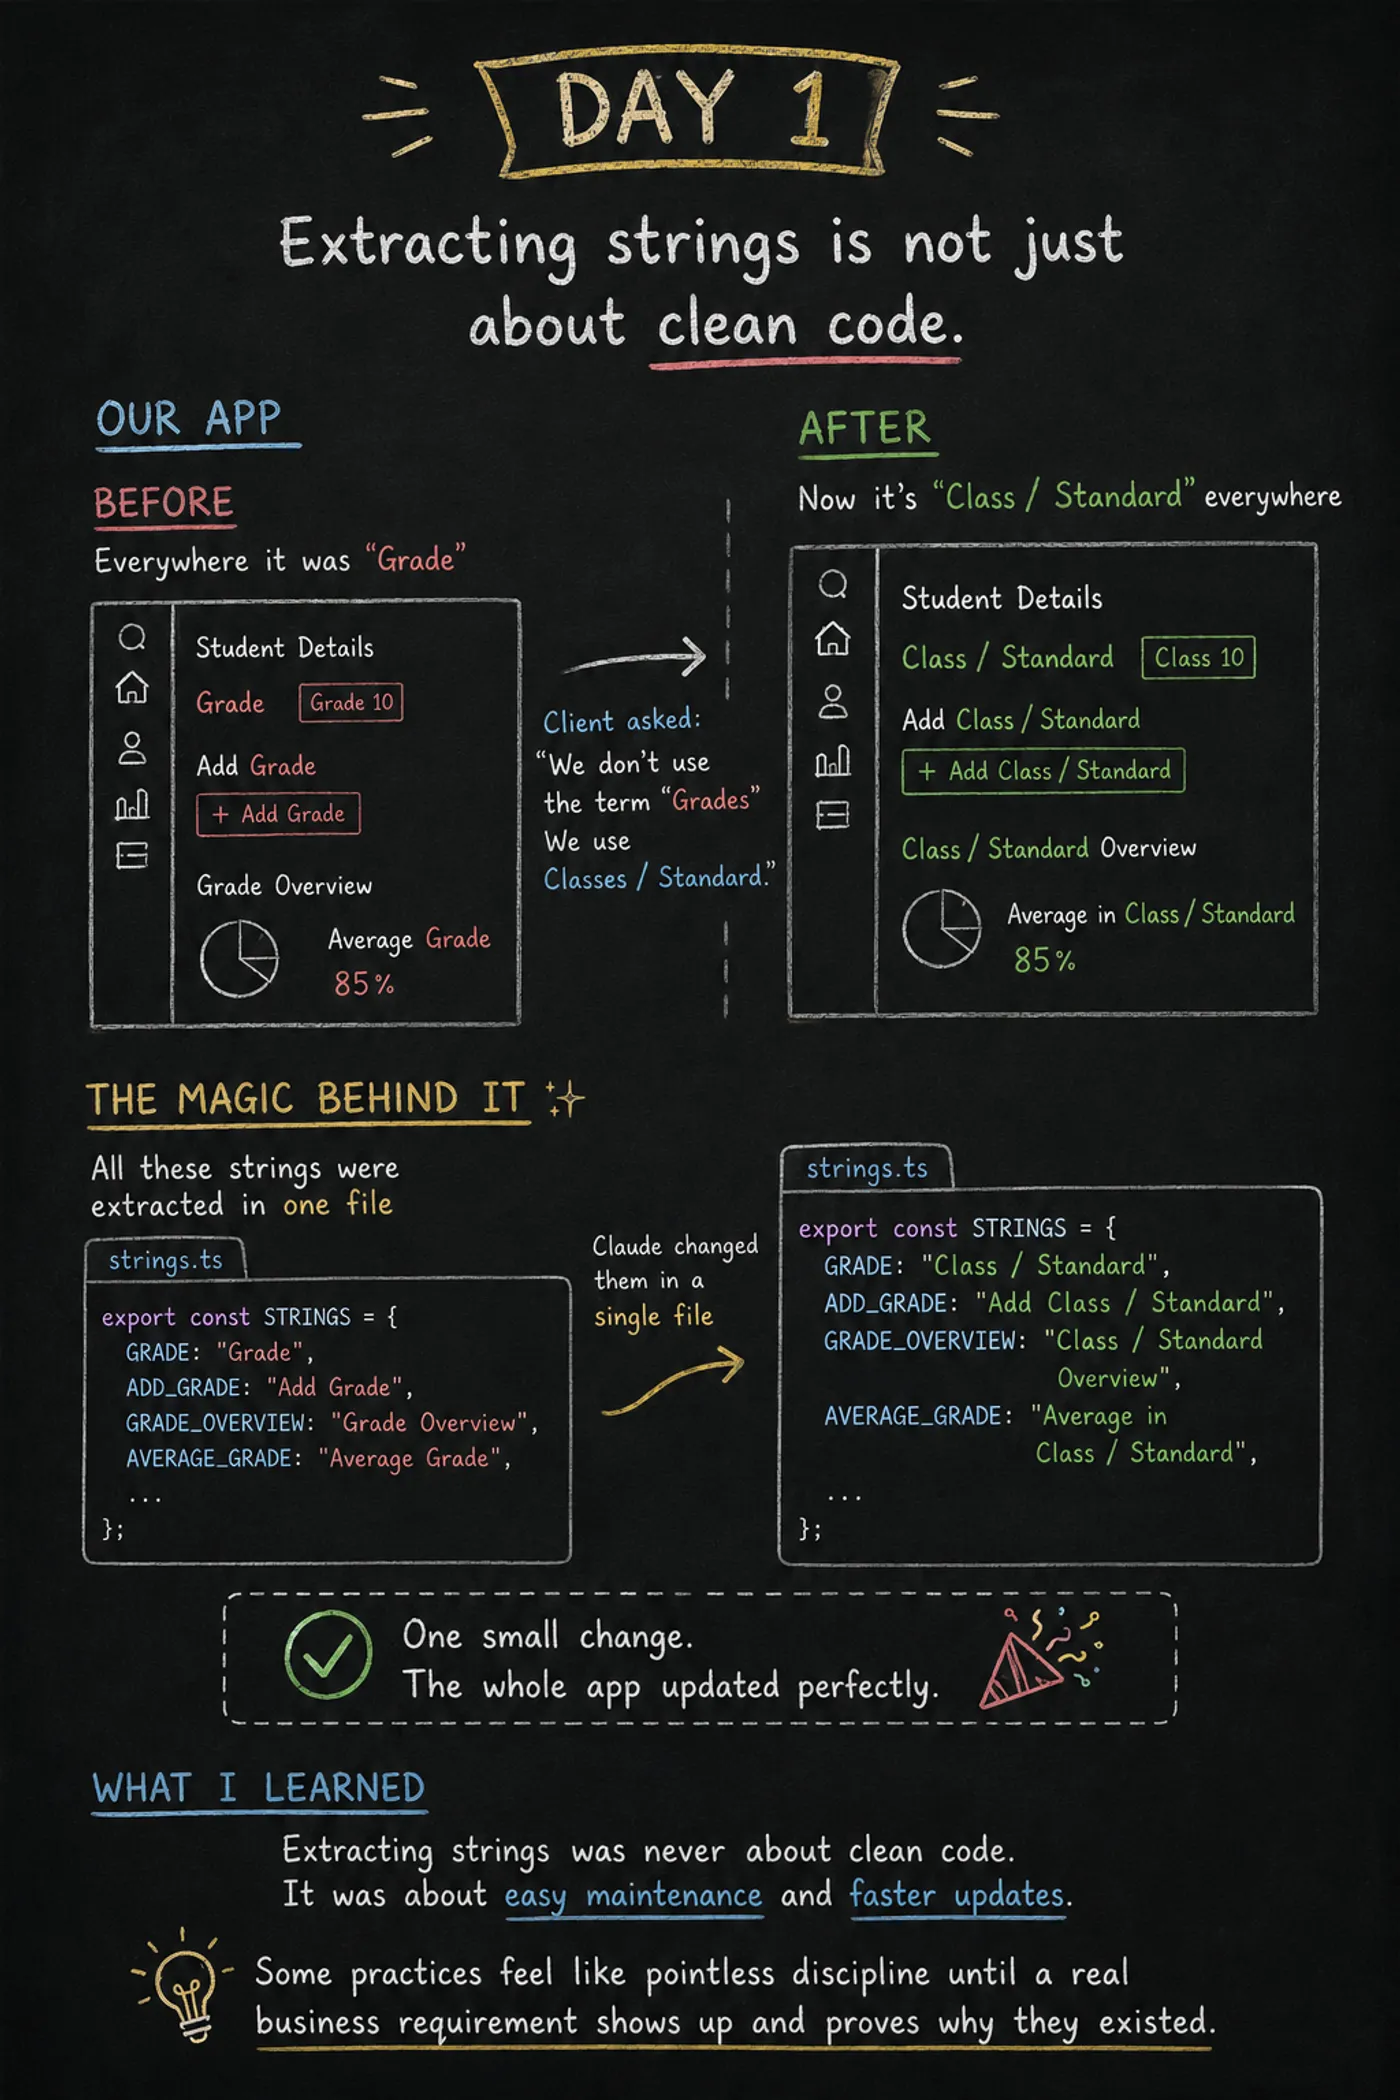 DAY 1
Extracting strings is not just
about clean code.
OUR APP
BEFORE
Everywhere it was “Grade”
Student Details
Grade
Grade 10
Add Grade
+ Add Grade
Grade Overview
Average Grade
85%
Client asked:
“We don’t use
the term “Grades”
We use
Classes / Standard.”
AFTER
Now it’s “Class / Standard” everywhere
Student Details
Class / Standard
Class 10
Add Class / Standard
+ Add Class / Standard
Class / Standard Overview
Average in Class / Standard
85%
THE MAGIC BEHIND IT
All these strings were
extracted in one file
strings.ts
export const STRINGS = {
GRADE: "Grade",
ADD_GRADE: "Add Grade",
GRADE_OVERVIEW: "Grade Overview",
AVERAGE_GRADE: "Average Grade",
...
};
Claude changed
them in a
single file
strings.ts
export const STRINGS = {
GRADE: "Class / Standard",
ADD_GRADE: "Add Class / Standard",
GRADE_OVERVIEW: "Class / Standard
Overview",
AVERAGE_GRADE: "Average in
Class / Standard",
...
};
One small change.
The whole app updated perfectly.
WHAT I LEARNED
Extracting strings was never about clean code.
It was about easy maintenance and faster updates.
Some practices feel like pointless discipline until a real
business requirement shows up and proves why they existed.